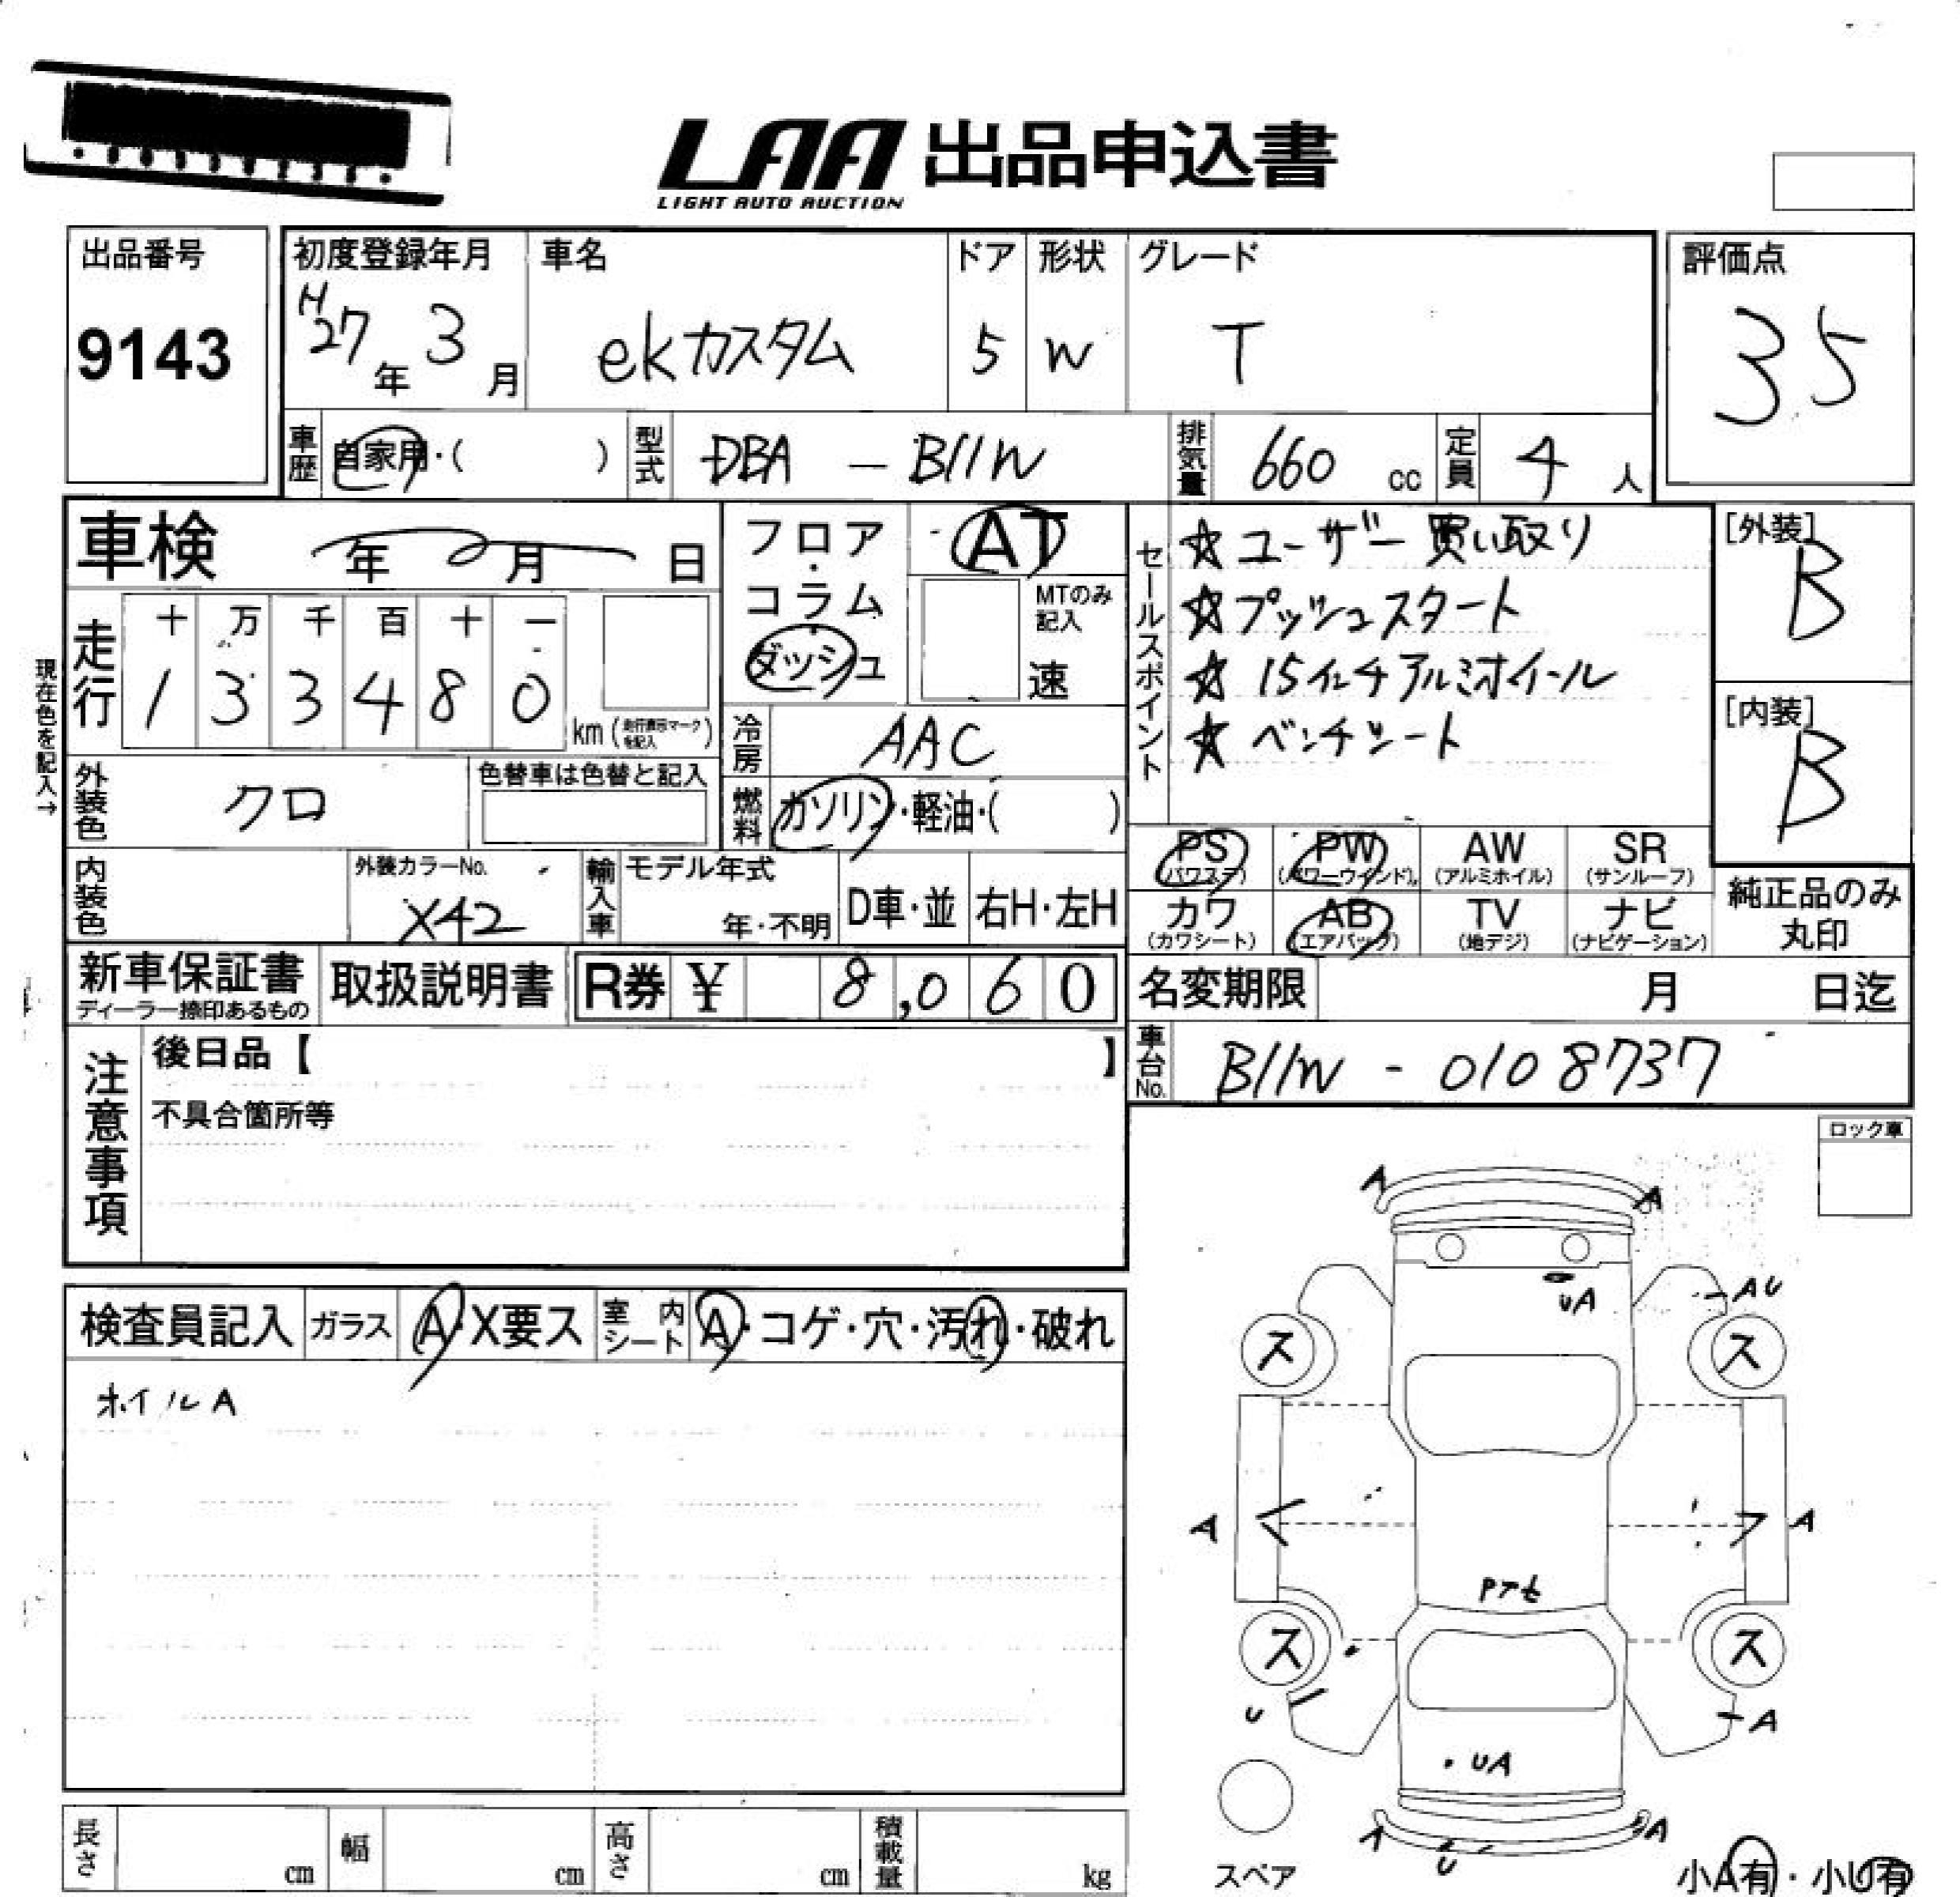 LAA 出品申込書
LIGHT AUTO AUCTION
出品番号 初度登録年月 車名 ドア 形状 グレード 評価点
9143 H27年 3月 ekカスタム 5 W T 35
車歴 自家用・( ) 型式 DBA - B11W 排気量 660 cc 定員 4 人
車検 年 月 日
フロア・コラム・ダッシュ AT
MTのみ記入 速
セールスポイント
☆ユーザー買い取り
☆プッシュスタート
☆15インチアルミホイール
☆ベンチシート
[外装] B
[内装] B
現在色を記入→
走行 十 万 千 百 十 一
1 3 3 4 8 0 km (走行表示マークを記入)
冷房 AAC
外装色 クロ 色替車は色替と記入
燃料 ガソリン・軽油・( )
PS (パワステ) PW (パワーウインド) AW (アルミホイル) SR (サンルーフ)
カワ (カワシート) AB (エアバッグ) TV (地デジ) ナビ (ナビゲーション)
純正品のみ丸印
内装色 外装カラーNo. X42 輸入車 モデル年式 年・不明 D車・並 右H・左H
新車保証書 ディーラー捺印あるもの 取扱説明書 R券 ¥ 8,060
名変期限 月 日迄
車台No. B11W - 0108737
注意事項
後日品【 】
不具合箇所等
ロック車
検査員記入 ガラス A・X要ス 室内シート A・コゲ・穴・汚れ・破れ
ホイルA
A A
UA AU
ス ス
A A
Pアセ
ス ス
U A
UA
A U A
スペア
小A有・小U有
長さ cm 幅 cm 高さ cm 積載量 kg